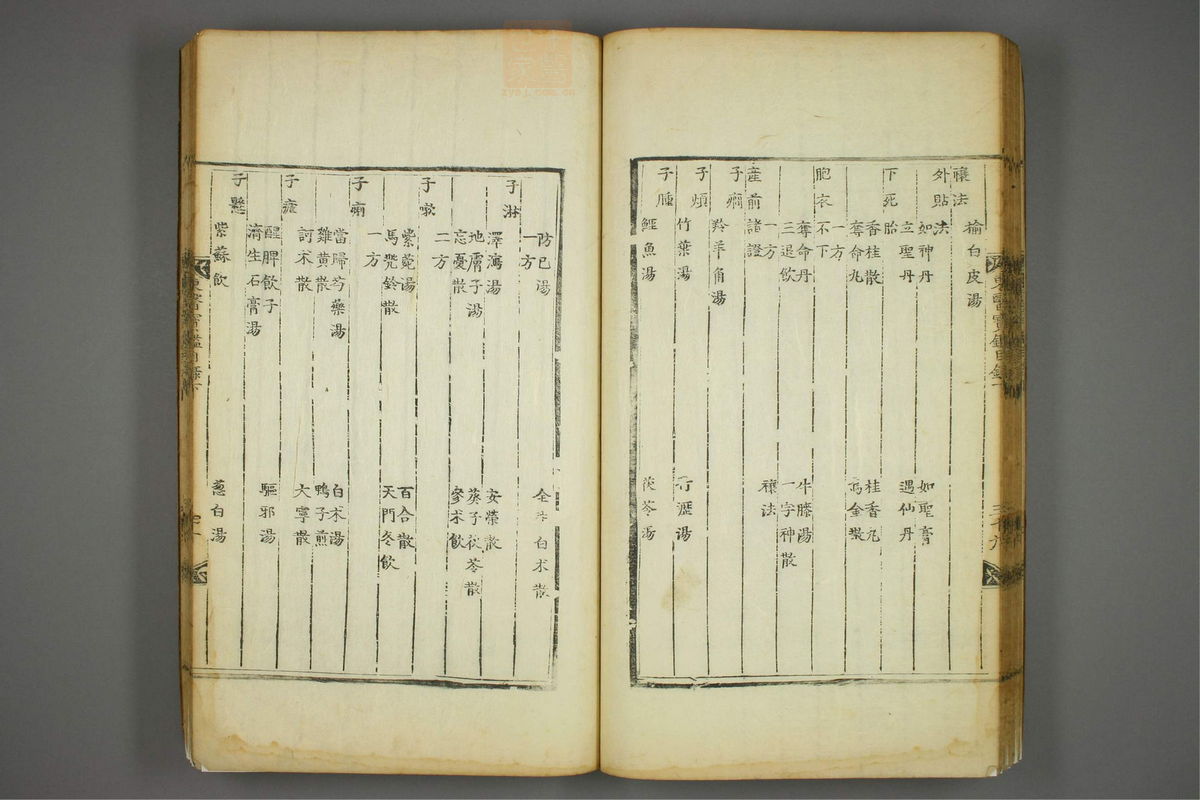 榆白皮湯
禳法
外貼法
如神丹 如聖膏
立聖丹 遇仙丹
下死胎
香桂散 桂香丸
奪命丸 烏金散
一方
胞衣不下
奪命丹 牛膝湯
三退飲 一字神散
一方 禳法
產前諸證
子癇
羚羊角湯
子煩
竹葉湯 竹瀝湯
子腫
鯉魚湯 茯苓湯
防己湯 全生白朮散
一方
子淋
澤瀉湯 安榮散
地膚子湯 葵子茯苓散
忘憂散 參朮飲
二方
子嗽
紫菀湯 百合散
馬兜鈴散 天門冬飲
一方
子痢
當歸芍藥湯 白朮湯
雞黃散 鴨子煎
朮散 大寧散
子瘧
醒脾飲子 驅邪湯
濟生石膏湯
子懸
紫蘇飲 葱白湯
東醫寶鑑目錄